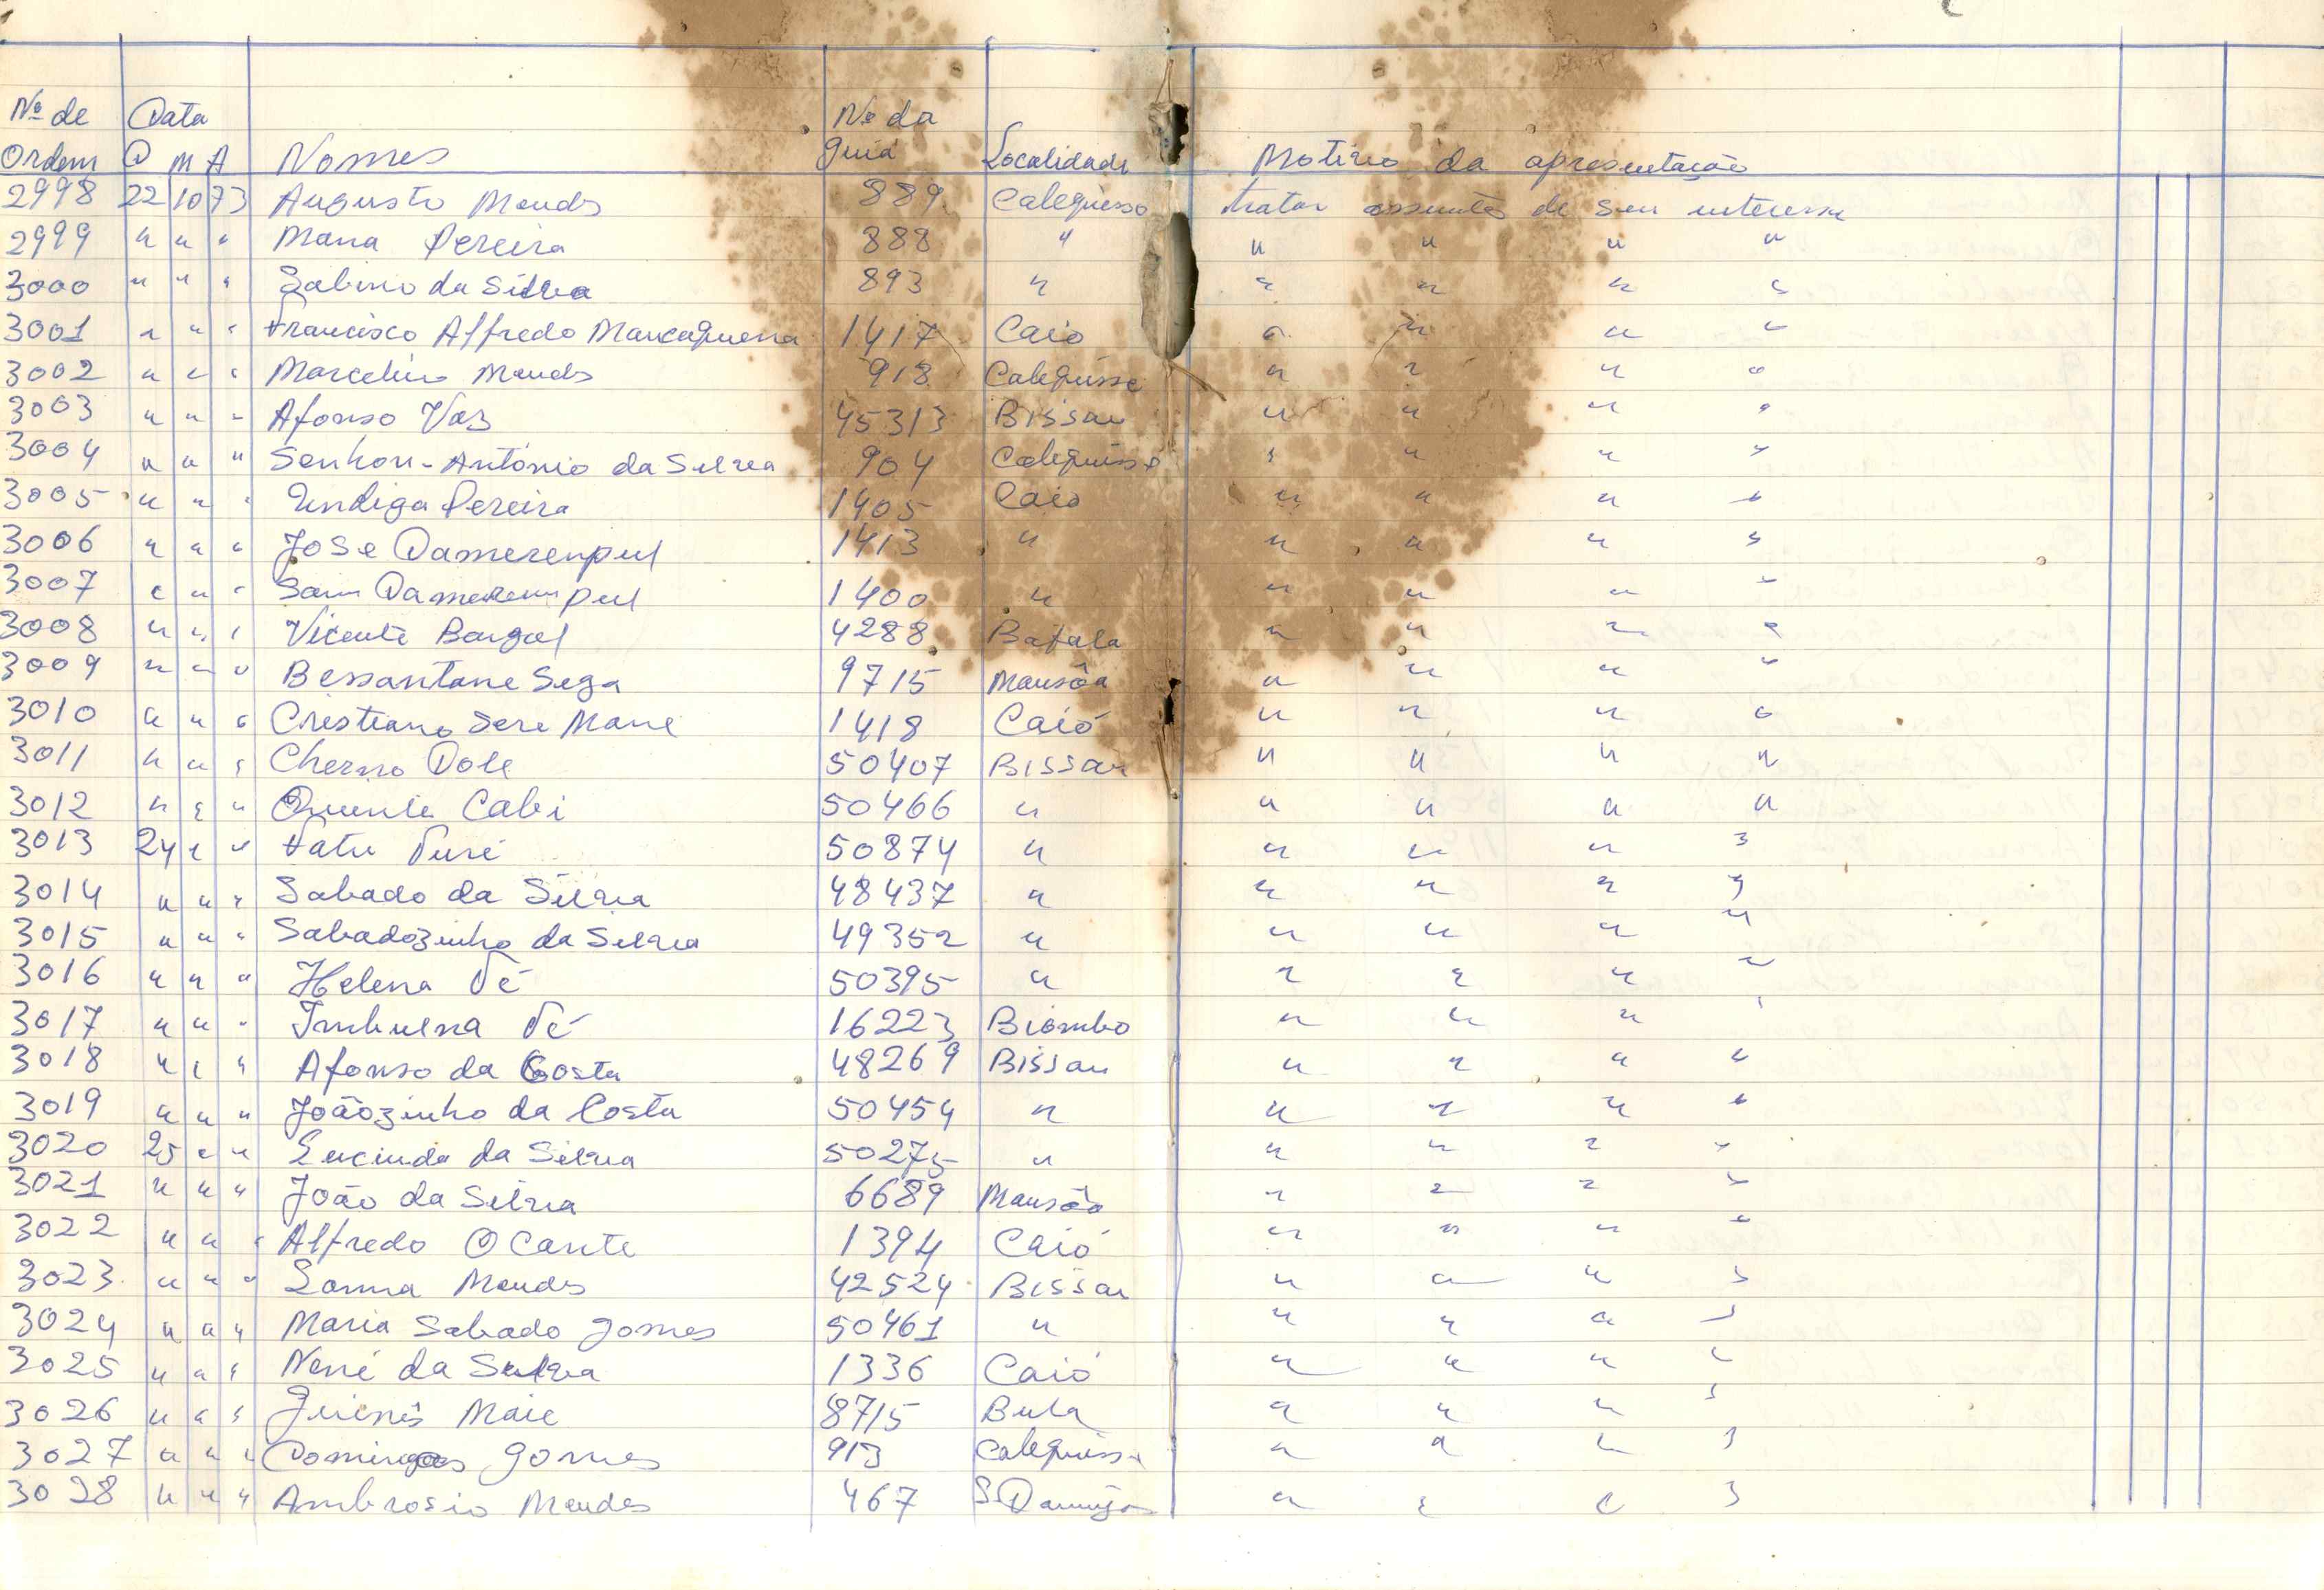 Nº de Data Nº da
Ordem D M A Nomes guia Localidade Motivo da apresentação
2998 22 10 73 Augusto Mendes 889 Calequisse tratar assuntos de seu interesse
2999 " " " Maria Pereira 888 " " " " "
3000 " " " Sabino da Silva 893 " " " " "
3001 " " " Francisco Alfredo 1417 Caio " " " "
3002 " " " Marcelino Mendes 918 Calequisse " " " "
3003 " " " Afonso Vaz 45313 Bissau " " " "
3004 " " " António da Silva 904 Calequisse " " " "
3005 " " " Undiga Pereira 1405 Caió " " " "
3006 " " " José Damerenpul 1413 " " " " "
3007 " " " Damerempul 1400 " " " " "
3008 " " " Vicente 4288 Bafata " " " "
3009 " " " Bessantane Sega 9715 Mansôa " " " "
3010 " " " Cristiano Sere Mane 1418 Caió " " " "
3011 " " " Cherno 50407 Bissau " " " "
3012 " " " Quinta Cabi 50466 " " " " "
3013 24 " " Fatu Turé 50874 " " " " "
3014 " " " Sabado da Silva 48437 " " " " "
3015 " " " Sabadozinho da Silva 49352 " " " " "
3016 " " " Helena Té 50395 " " " " "
3017 " " " Té 16223 Biombo " " " "
3018 " " " Afonso da Costa 48269 Bissau " " " "
3019 " " " Joãozinho da Costa 50454 " " " " "
3020 25 " " Lucinda da Silva 50275 " " " " "
3021 " " " João da Silva 6689 Mansôa " " " "
3022 " " " Alfredo O Cante 1394 Caió " " " "
3023 " " " Mendes 42524 Bissau " " " "
3024 " " " Maria Sabado Gomes 50461 " " " " "
3025 " " " Nené da Silva 1336 Caió " " " "
3026 " " " 8715 Bula " " " "
3027 " " " Domingos Gomes 913 Calequisse " " " "
3028 " " " Ambrosio Mendes 467 S. Domingos " " " "